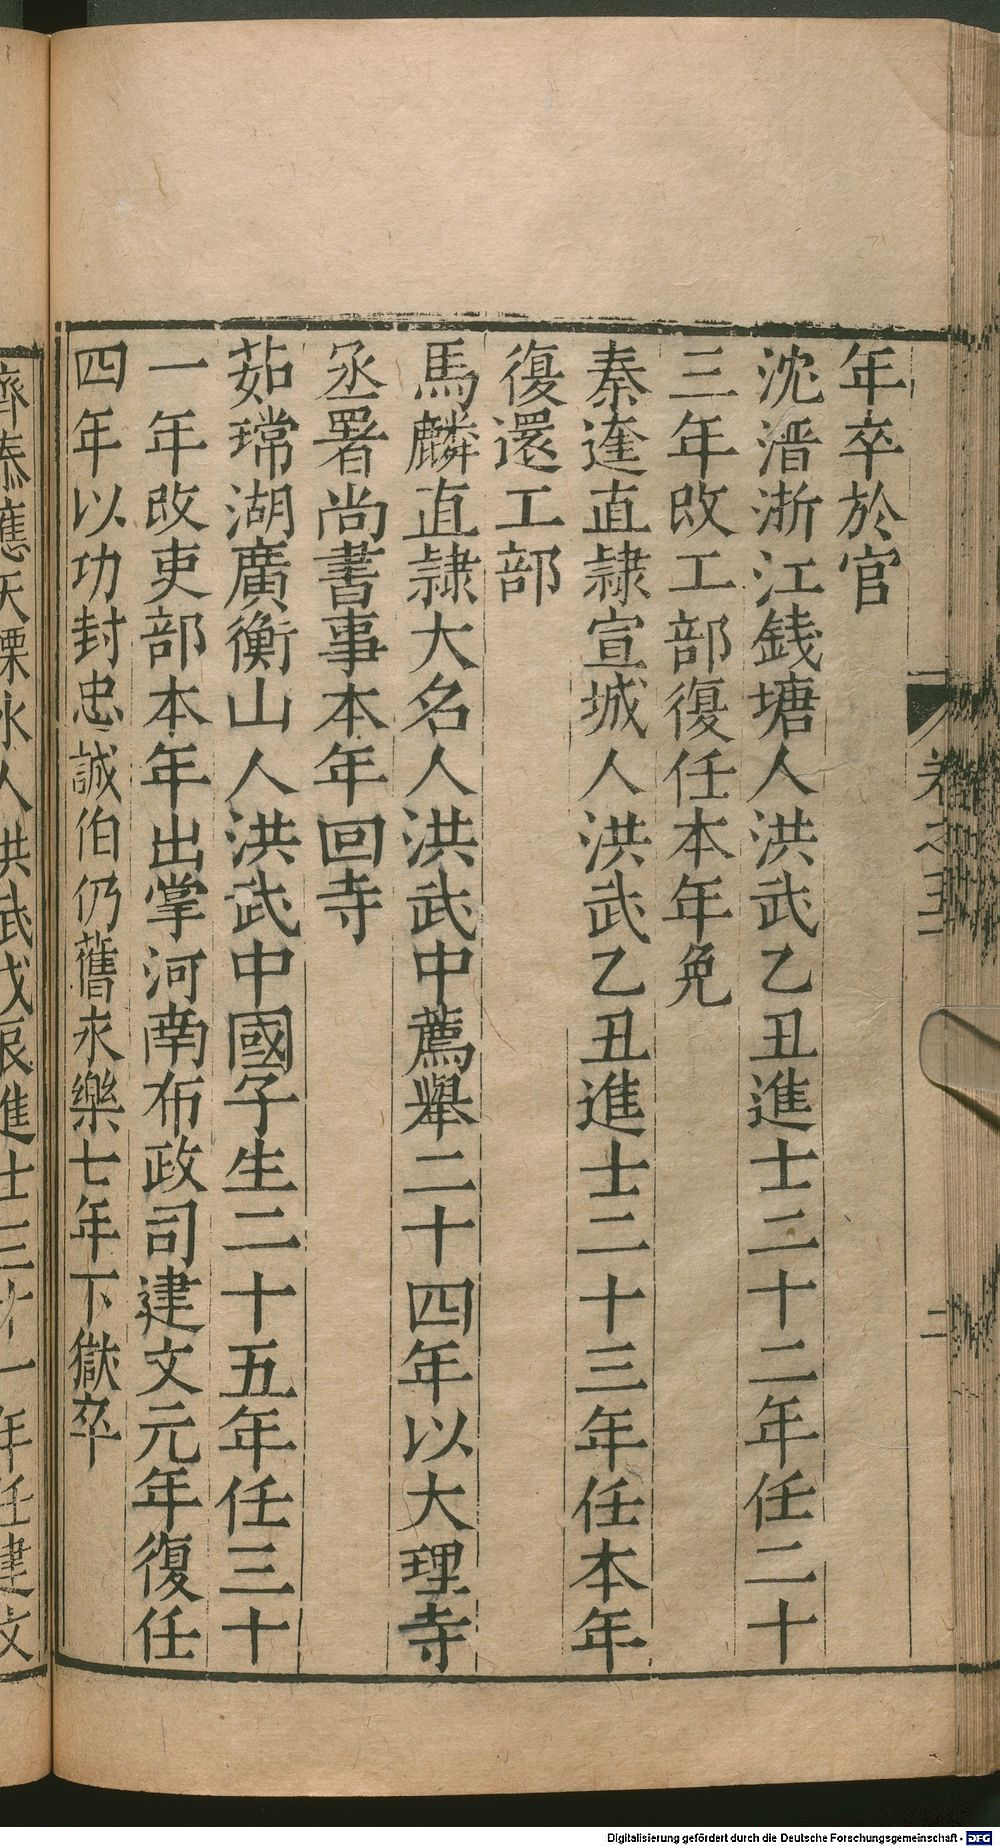 年卒於官
沈溍浙江錢塘人洪武乙丑進士二十二年任二十
三年改工部復任本年免
秦逵直隷宣城人洪武乙丑進士二十三年任本年
復還工部
馬麟直隷大名人洪武中薦舉二十四年以大理寺
丞署尚書事本年回寺
茹瑺湖廣衡山人洪武中國子生二十五年任三十
一年改吏部本年出掌河南布政司建文元年復任
四年以功封忠誠伯仍舊永樂七年下獄卒
齊泰應天溧水人洪武戊辰進士三十一年任建文
卷之五
二
Digitalisierung gefördert durch die Deutsche Forschungsgemeinschaft - DFG